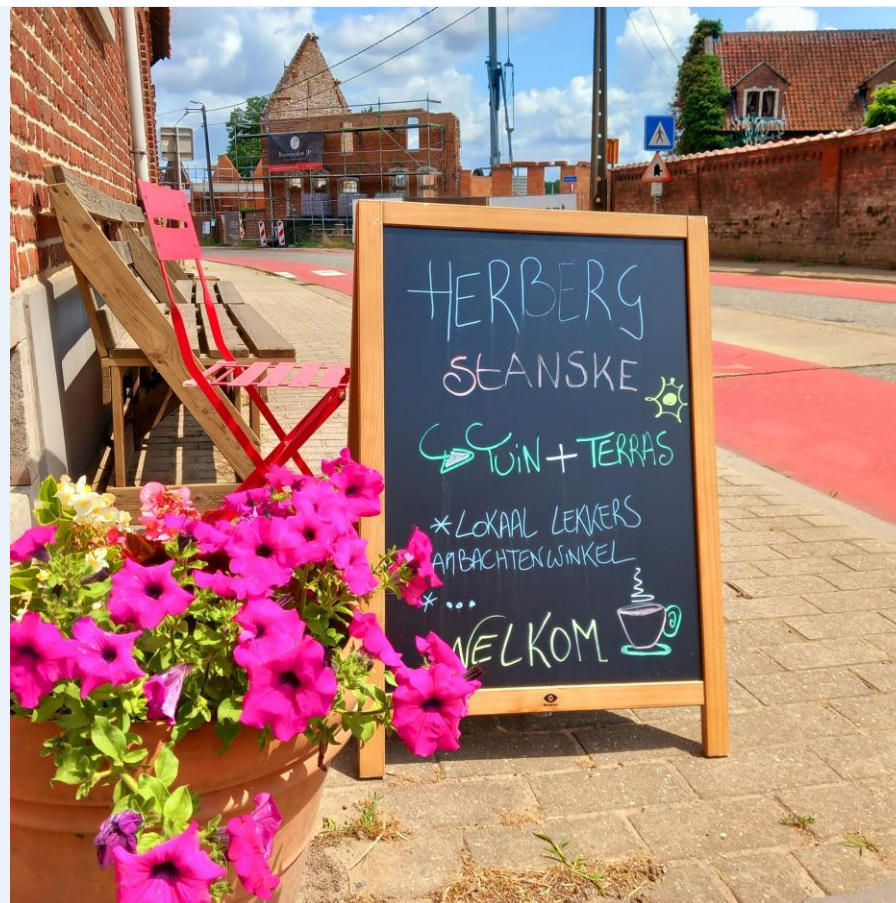 HERBERG
STANSKE
TUIN + TERRAS
* LOKAAL LEKKERS
AMBACHTENWINKEL
* ...
WELKOM